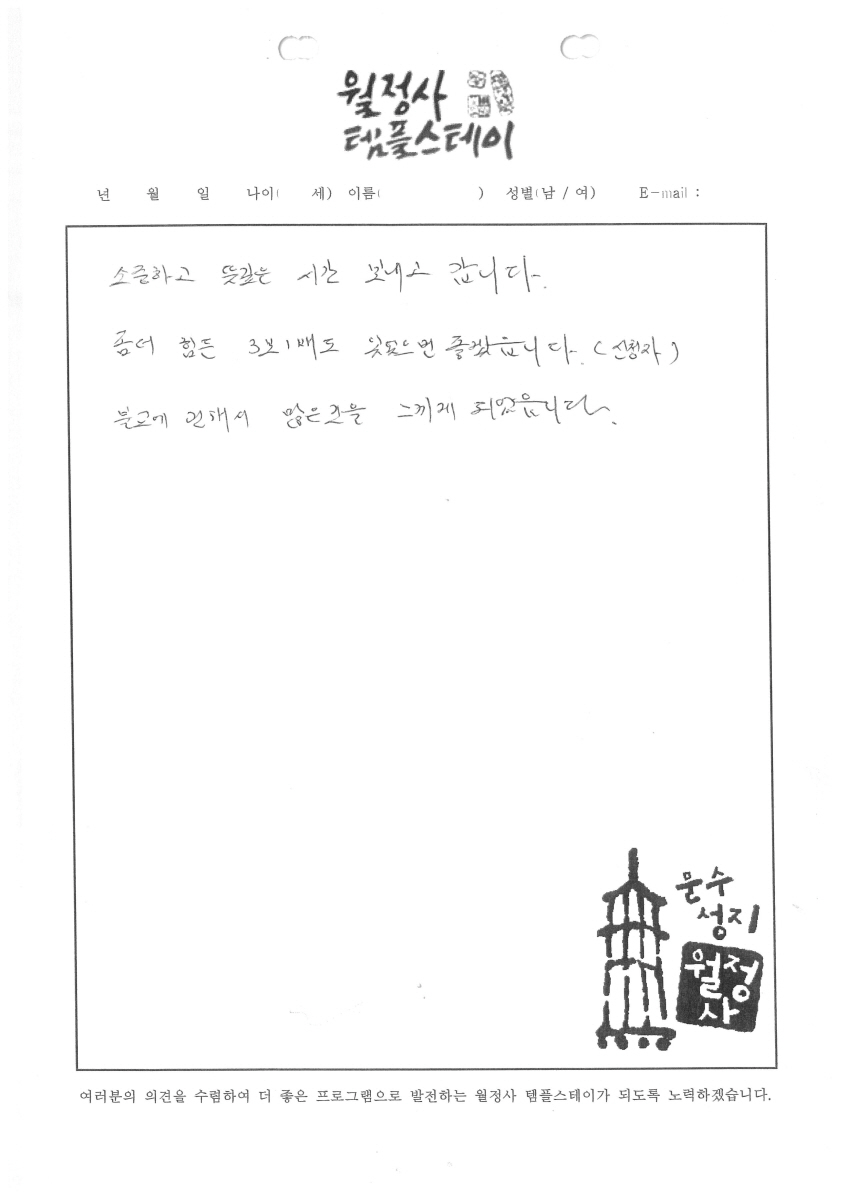 월정사
템플스테이
년 월 일 나이( 세) 이름( ) 성별(남 / 여) E-mail :
소중하고 뜻깊은 시간 보내고 갑니다.
좀더 힘든 3보1배도 있으면 좋겠읍니다. (신청자)
불교에 관해서 많은것을 느끼게 되었읍니다.
문수
성지
월정
사
여러분의 의견을 수렴하여 더 좋은 프로그램으로 발전하는 월정사 템플스테이가 되도록 노력하겠습니다.